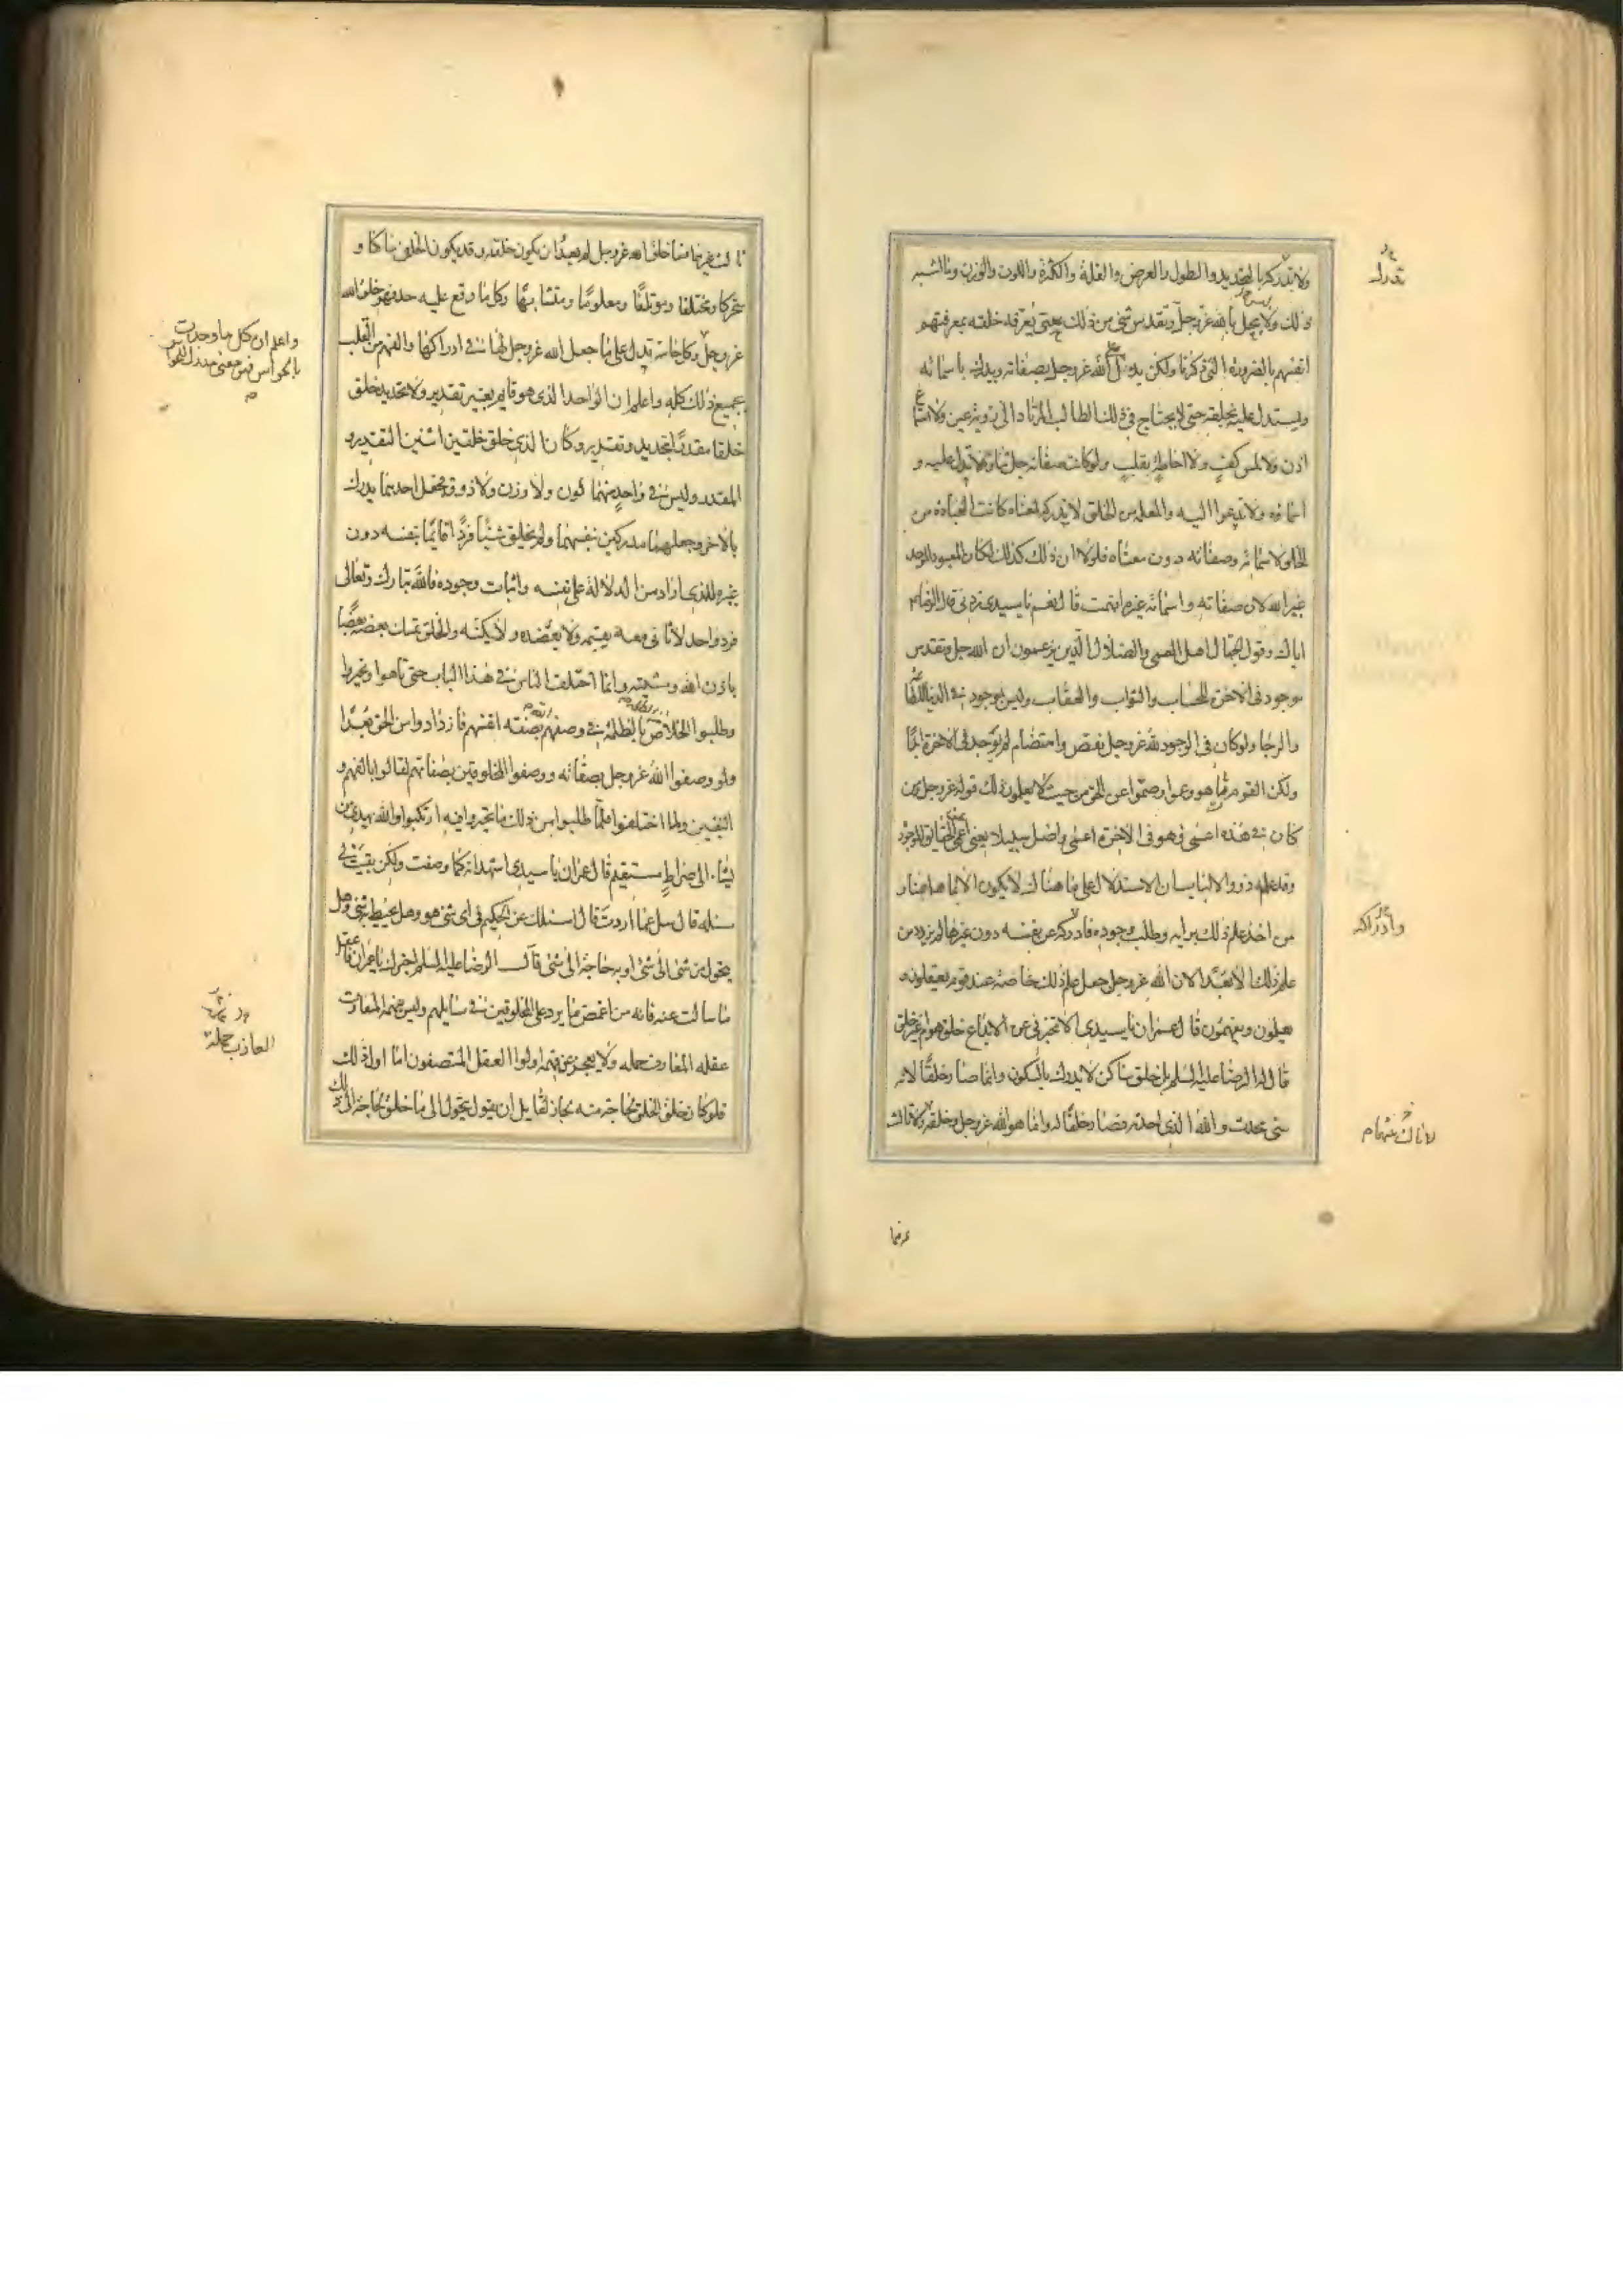 ولا تدرك بالتحديد والطول والعرض والقلة والكثرة واللون والوزن وما اشبه
ذلك ولا يحل بالله عز وجل وتقدس شئ من ذلك حتى يعرفه خلقه بمعرفتهم
انفسهم بالضرورة التى ذكرنا ولكن يدل على الله عز وجل بصفاته ويدرك باسمائه
ويستدل عليه بخلقه حتى لا يحتاج فى ذلك الطالب المرتاد الى رؤية عين ولا استماع
اذن ولا لمس كف ولا احاطة بقلب ولو كانت صفاته جل ثناؤه لا تدل عليه و
اسماؤه ولا تدعوا اليه والمعلمة من الخلق لا تدركه لمعناه كانت العبادة من
الخلق لاسمائه وصفاته دون معناه فلولا ان ذلك كذلك لكان المعبود الموحد
غير الله لان صفاته واسمائه غيره افهمت قال نعم يا سيدى زدنى قال الرضا ع
اياك وقول الجهال اهل العمى والضلال الذين يزعمون ان الله جل وتقدس
موجود فى الاخرة للحساب والثواب والعقاب وليس بموجود فى الدنيا للطاعة
والرجا ولو كان فى الوجود لله عز وجل نقص واهتضام لم يوجد فى الاخرة ابدا
ولكن القوم تاهوا وعموا وصموا عن الحق من حيث لا يعلمون ذلك قوله عز وجل من
كان فى هذه اعمى فهو فى الاخرة اعمى واضل سبيلا يعنى اعمى عن الحقايق الموجودة
وقد علم ذووا الالباب ان الاستدلال على ما هناك لا يكون الا بما هاهنا و
من اخذ علم ذلك برايه وطلب وجوده وادركه عن نفسه دون غيرها لم يزدد من
علم ذلك الا بعدا لان الله عز وجل جعل علم ذلك خاصة عند قوم يعقلون و
يعلمون ويفهمون قال عمران يا سيدى الا تخبرنى عن الابداع خلق هو ام غير خلق
قال له الرضا عليه السلم بل خلق ساكن لا يدرك بالسكون وانما صار خلقا لانه
شئ محدث والله الذى احدثه فصار خلقا له وانما هو الله عز وجل وخلقه لا ثالث
تدرك
وادراكه
لا ثالث بينهما م
ثالث غيرهما فما خلق الله عز وجل لم يعد ان يكون خلقه وقد يكون الخلق ساكنا و
متحركا ومختلفا وموتلفا ومعلوما ومتشابها وكل ما وقع عليه حد فهو خلق الله
عز وجل وكل حاسة تدل على ما جعل الله عز وجل لها فى ادراكها والفهم من القلب
بجميع ذلك كله واعلم ان الواحد الذى هو قايم بغير تقدير ولا تحديد خلق
خلقا مقدرا بتحديد وتقدير وكان الذى خلق خلقين اثنين التقدير و
المقدر وليس فى واحد منهما لون ولا وزن ولا ذوق فجعل احدهما يدرك
بالاخر وجعلهما مدركين بنفسهما ولم يخلق شيئا فردا قايما بنفسه دون
غيره للذى اراد من الدلالة على نفسه واثبات وجوده فالله تبارك وتعالى
فرد واحد لا ثانى معه يقيمه ولا يعضده ولا يكنه والخلق يمسك بعضه بعضا
باذن الله ومشيته وانما اختلف الناس فى هذا الباب حتى تاهوا وتحيروا
وطلبوا الخلاص من الظلمة بالظلمة فى وصفهم الله بصفة انفسهم فازدادوا من الحق بعدا
ولو وصفوا الله عز وجل بصفاته ووصفوا المخلوقين بصفاتهم لقالوا بالفهم و
اليقين ولما اختلفوا فلما طلبوا من ذلك ما تحيروا فيه ارتكبوا والله يهدى من
يشاء الى صراط مستقيم قال عمران يا سيدى اشهد انه كما وصفت ولكن بقيت لى
مسئلة قال سل عما اردت قال اسئلك عن الحكيم فى اى شئ هو وهل يحيط به شئ وهل
يتحول من شئ الى شئ او به حاجة الى شئ قال الرضا عليه السلم اخبرك يا عمران فاعقل
ما سالت عنه فانه من اغمض ما يرد على المخلوقين فى مسايلهم وليس يفهمه المتفاوت
عقله العازب حلمه ولا يعجز عن فهمه اولوا العقل المنصفون اما اول ذلك
فلو كان خلق الخلق لحاجة منه لجاز لقايل ان يقول يتحول الى ما خلق لحاجته الى ذلك
واعلم ان كل ما وجدت
بالحواس فهو معنى مدرك للحواس
العازب حمله